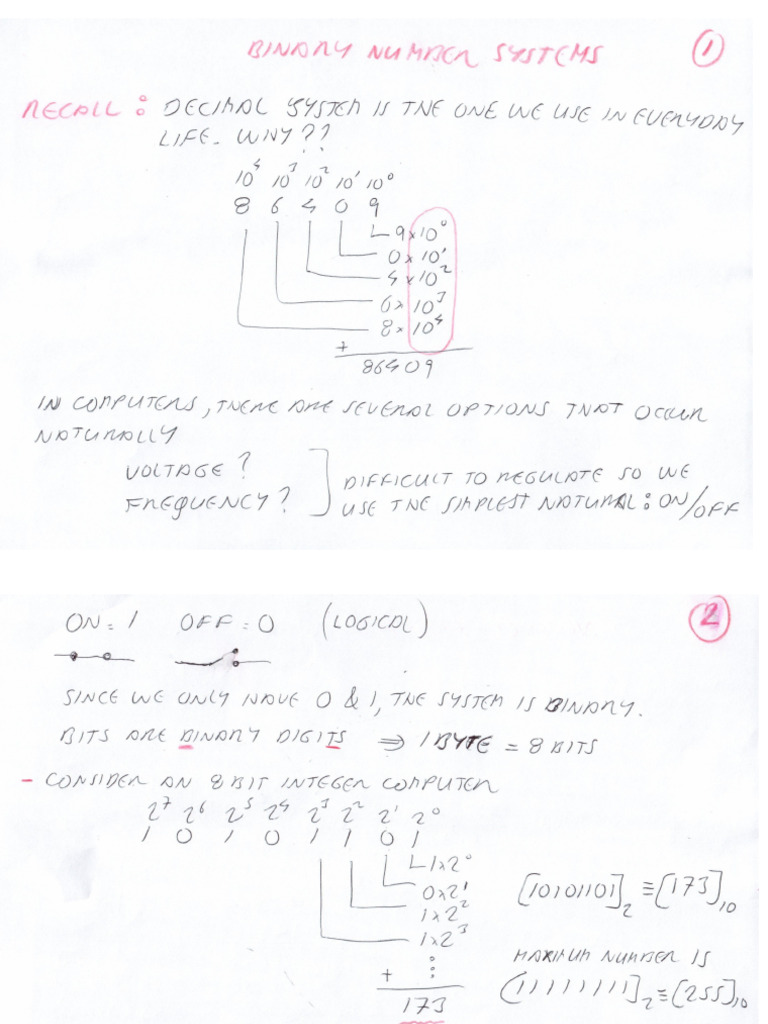 BINARY NUMBER SYSTEMS
1
RECALL: DECIMAL SYSTEM IS THE ONE WE USE IN EVERYDAY
LIFE. WHY??
10⁴ 10³ 10² 10¹ 10⁰
8 6 4 0 9
9×10⁰
0×10¹
4×10²
6×10³
8×10⁴
+
86409
IN COMPUTERS, THERE ARE SEVERAL OPTIONS THAT OCCUR
NATURALLY
VOLTAGE?
FREQUENCY?
DIFFICULT TO REGULATE SO WE
USE THE SIMPLEST NATURAL: ON/OFF
ON = 1 OFF = 0 (LOGICAL)
2
SINCE WE ONLY HAVE 0 & 1, THE SYSTEM IS BINARY.
BITS ARE BINARY DIGITS ⇒ 1 BYTE = 8 BITS
- CONSIDER AN 8 BIT INTEGER COMPUTER
2⁷ 2⁶ 2⁵ 2⁴ 2³ 2² 2¹ 2⁰
1 0 1 0 1 1 0 1
1×2⁰
0×2¹
1×2²
1×2³
+ ⋮
173
[10101101]₂ ≡ [173]₁₀
MAXIMUM NUMBER IS
(11111111]₂ ≡ [255]₁₀